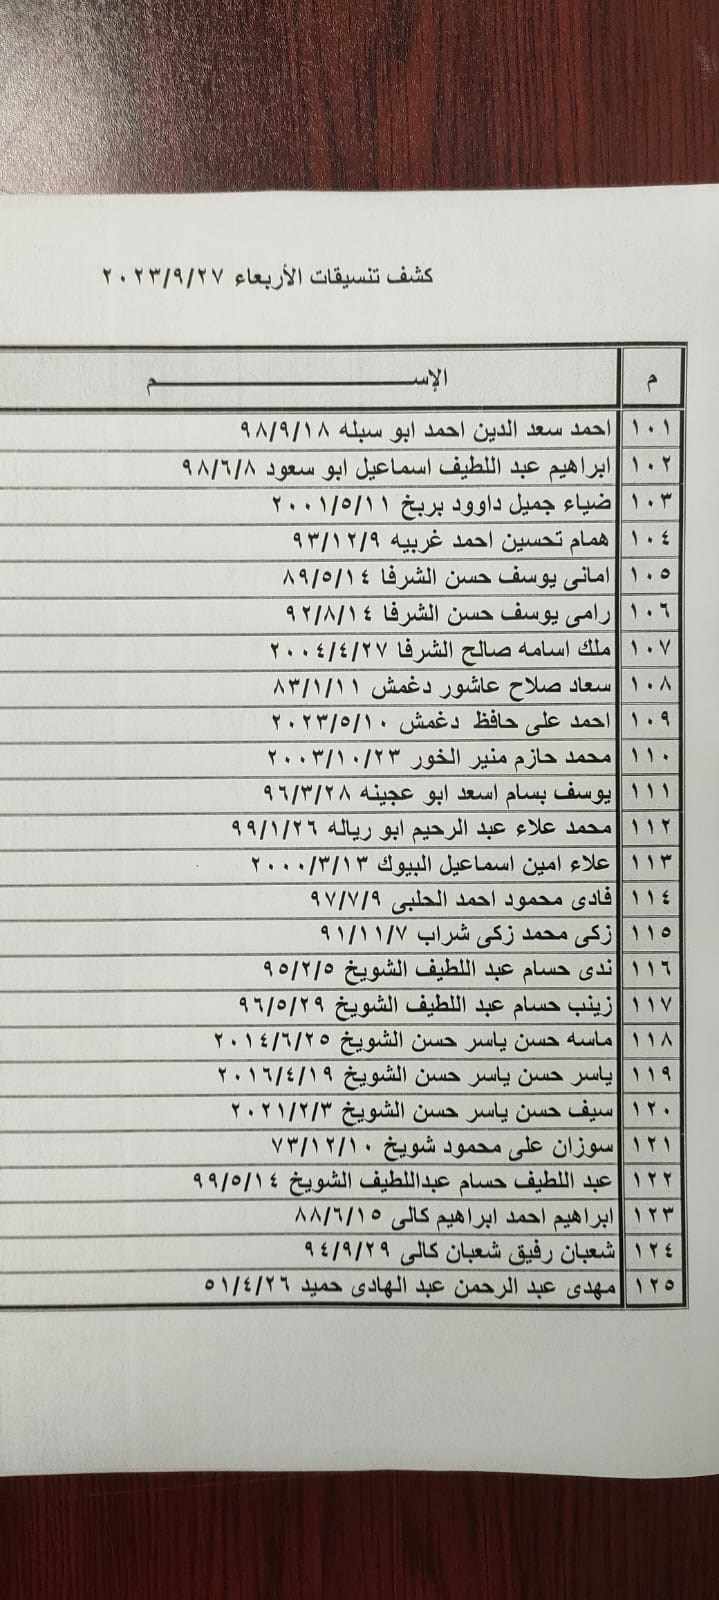 كشف تنسيقات الأربعاء ٢٠٢٣/٩/٢٧
م الإســــــــم
١٠١ احمد سعد الدين احمد ابو سبله ٩٨/٩/١٨
١٠٢ ابراهيم عبد اللطيف اسماعيل ابو سعود ٩٨/٦/٨
١٠٣ ضياء جميل داوود بربخ ٢٠٠١/٥/١١
١٠٤ همام تحسين احمد غربيه ٩٣/١٢/٩
١٠٥ امانى يوسف حسن الشرفا ٨٩/٥/١٤
١٠٦ رامى يوسف حسن الشرفا ٩٢/٨/١٤
١٠٧ ملك اسامه صالح الشرفا ٢٠٠٤/٤/٢٧
١٠٨ سعاد صلاح عاشور دغمش ٨٣/١/١١
١٠٩ احمد على حافظ دغمش ٢٠٢٣/٥/١٠
١١٠ محمد حازم منير الخور ٢٠٠٣/١٠/٢٣
١١١ يوسف بسام اسعد ابو عجينه ٩٦/٣/٢٨
١١٢ محمد علاء عبد الرحيم ابو رياله ٩٩/١/٢٦
١١٣ علاء امين اسماعيل البيوك ٢٠٠٠/٣/١٣
١١٤ فادى محمود احمد الحلبى ٩٧/٧/٩
١١٥ زكى محمد زكى شراب ٩١/١١/٧
١١٦ ندى حسام عبد اللطيف الشويخ ٩٥/٢/٥
١١٧ زينب حسام عبد اللطيف الشويخ ٩٦/٥/٢٩
١١٨ ماسه حسن ياسر حسن الشويخ ٢٠١٤/٦/٢٥
١١٩ ياسر حسن ياسر حسن الشويخ ٢٠١٦/٤/١٩
١٢٠ سيف حسن ياسر حسن الشويخ ٢٠٢١/٢/٣
١٢١ سوزان على محمود شويخ ٧٣/١٢/١٠
١٢٢ عبد اللطيف حسام عبداللطيف الشويخ ٩٩/٥/١٤
١٢٣ ابراهيم احمد ابراهيم كالى ٨٨/٦/١٥
١٢٤ شعبان رفيق شعبان كالى ٩٤/٩/٢٩
١٢٥ مهدى عبد الرحمن عبد الهادى حميد ٥١/٤/٢٦